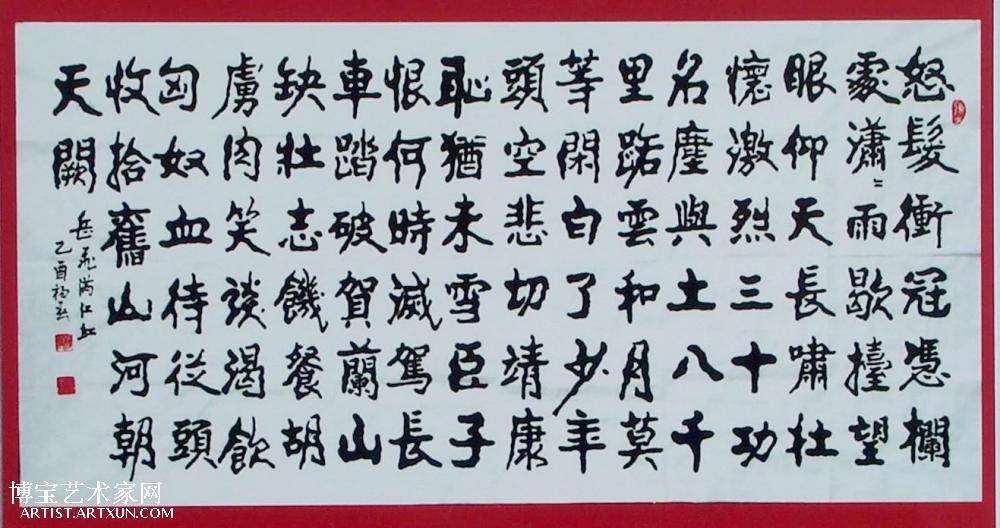 怒髮衝冠憑欄
處瀟〻雨歇擡望
眼仰天長嘯壯
懷激烈三十功
名塵與土八千
里路雲和月莫
等閑白了少年
頭空悲切靖康
恥猶未雪臣子
恨何時滅駕長
車踏破賀蘭山
缺壯志饑餐胡
虜肉笑談渴飲
匈奴血待從頭
收拾舊山河朝
天闕
岳飛滿江紅
乙酉
博宝艺术家网
ARTIST.ARTXUN.COM